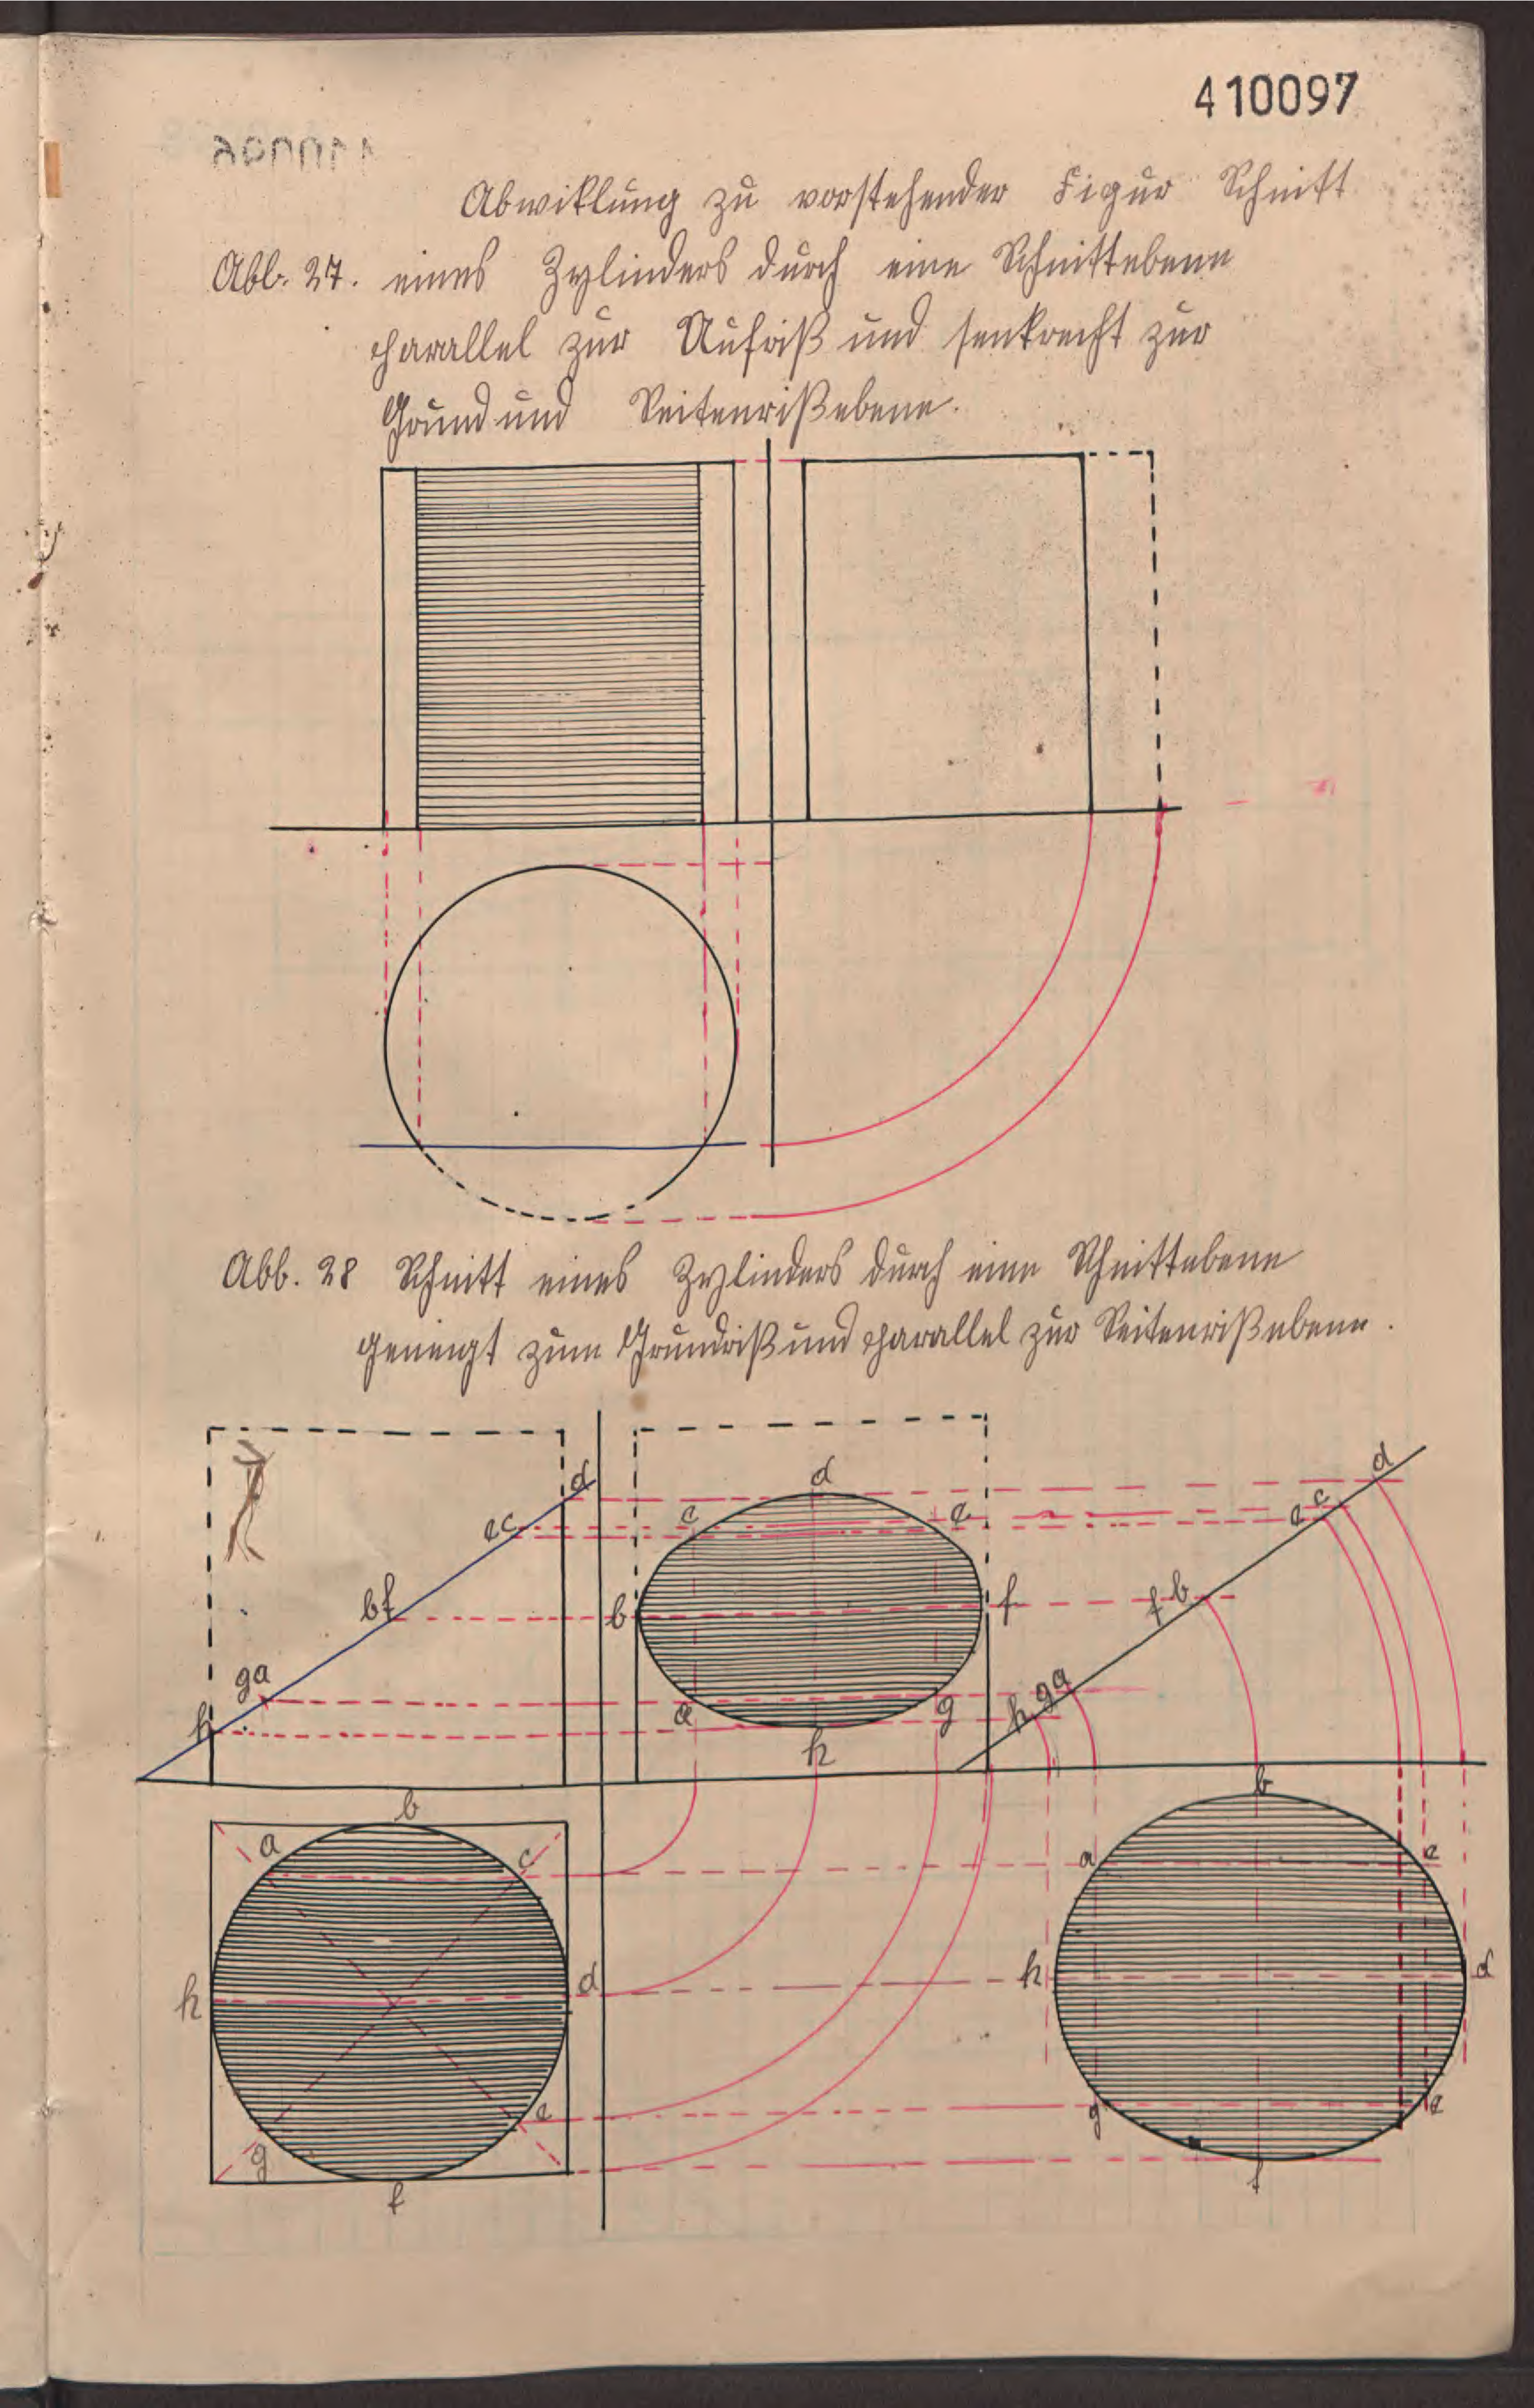 410097
Abwiklung zu vorstehender Figur Schnitt
Abb. 27. eines Zylinders durch eine Schnittebene
parallel zur Aufriß und senkrecht zur
Grund und Seitenrißebene.
Abb. 28 Schnitt eines Zylinders durch eine Schnittebene
geneigt zum Grundriß und parallel zur Seitenrißebene.
d d d
ec c e e c
bf b f f b
ga a g h g a
h h
b b
a c a c
h d h d
g e g e
f f